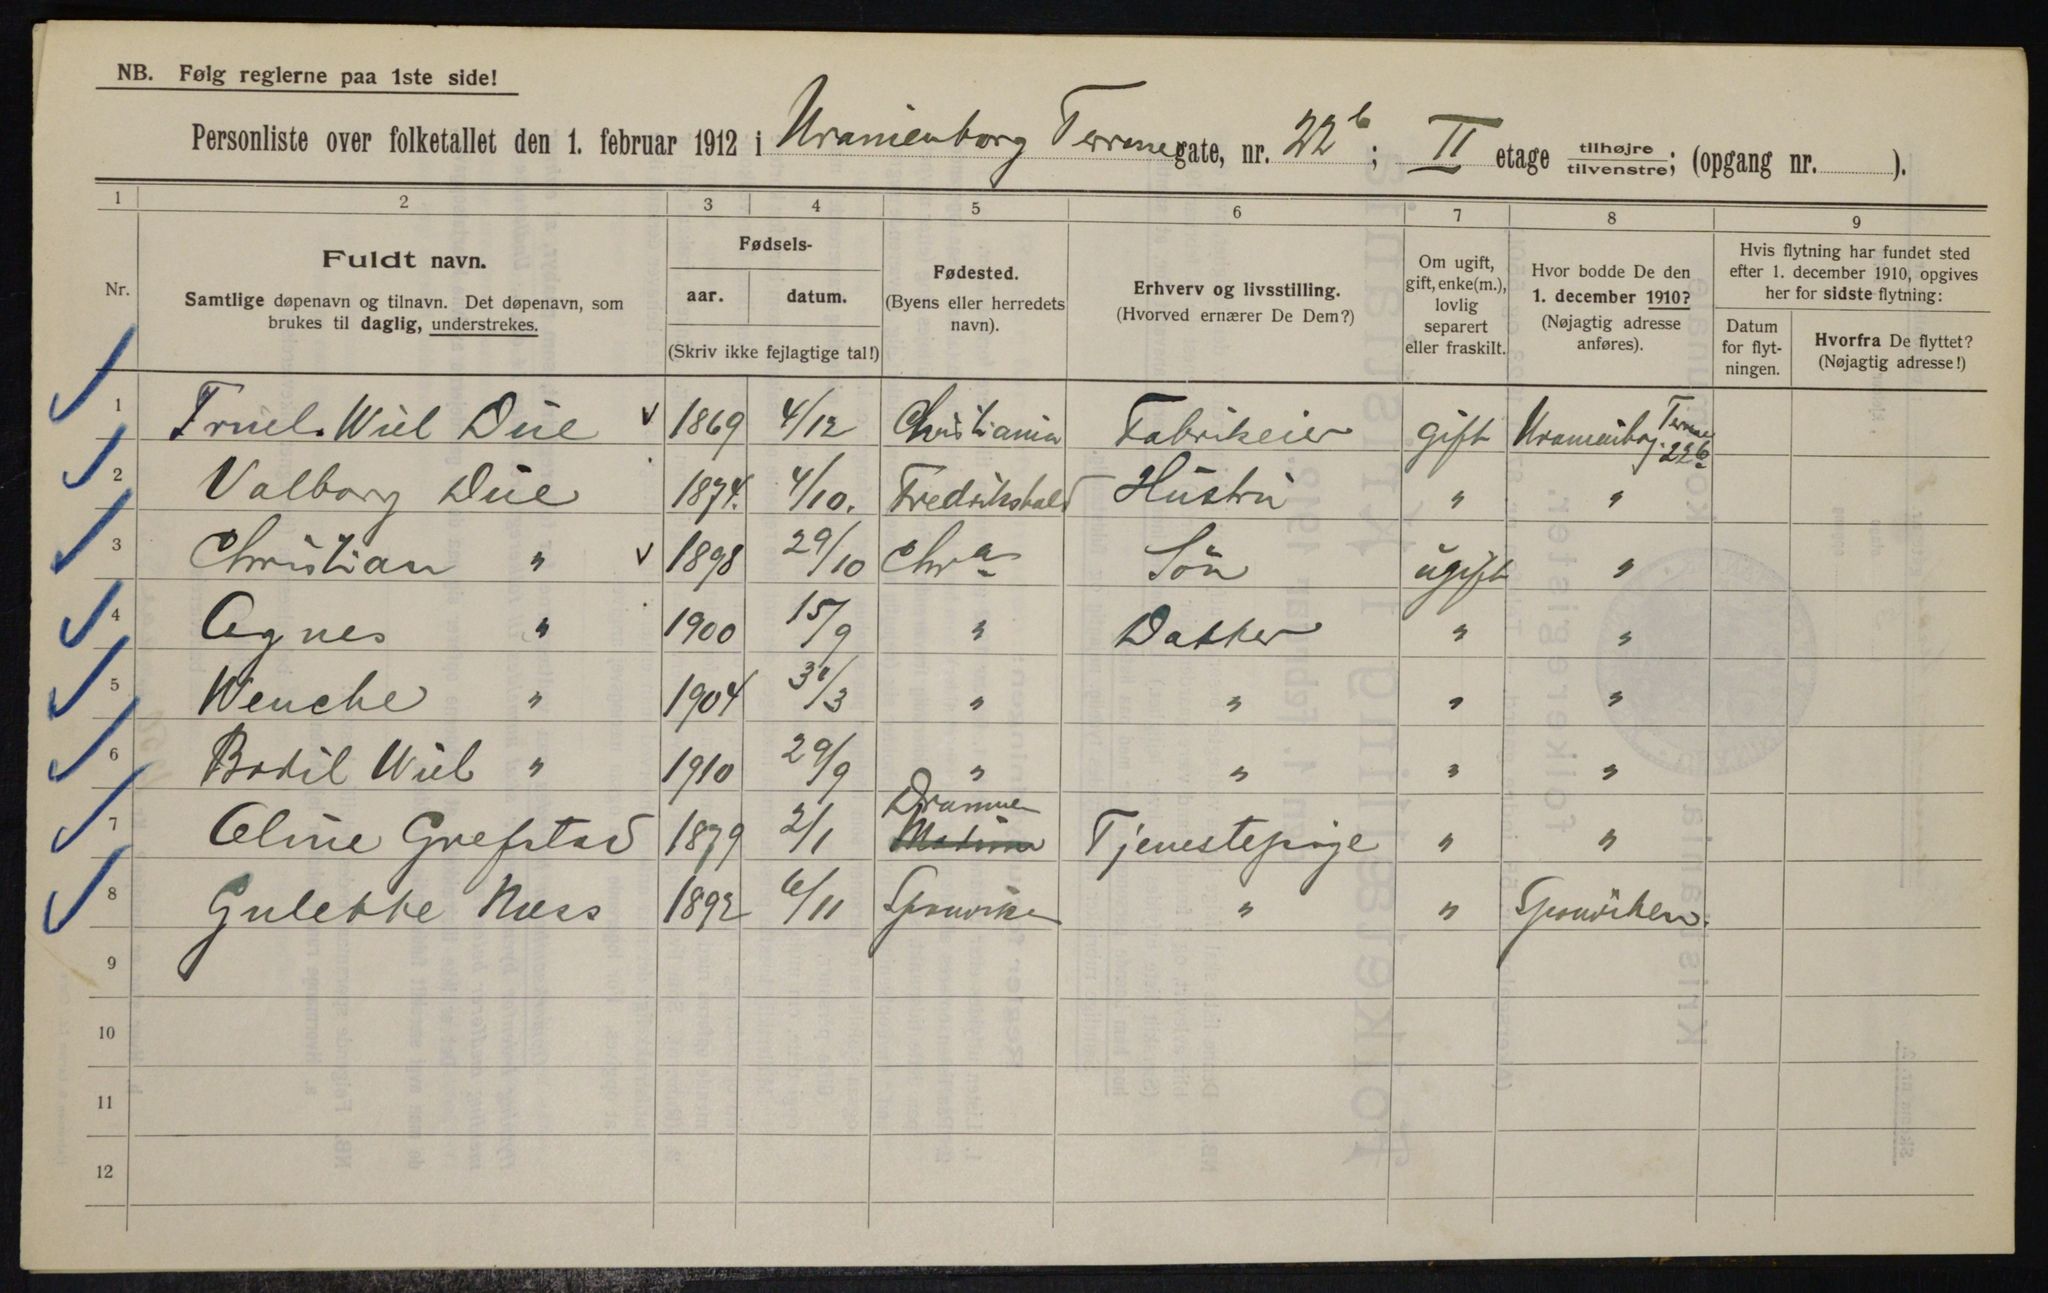 NB. Følg reglerne paa 1ste side!
Personliste over folketallet den 1. februar 1912 i Uranienborg Terrasse gate, nr. 22 b; II etage tilhøjre/tilvenstre; (opgang nr. ).
1 2 3 4 5 6 7 8 9
Nr.
Fuldt navn.
Samtlige døpenavn og tilnavn. Det døpenavn, som
brukes til daglig, understrekes.
Fødsels-
aar. datum.
(Skriv ikke fejlagtige tal!)
Fødested.
(Byens eller herredets
navn).
Erhverv og livsstilling.
(Hvorved ernærer De Dem?)
Om ugift,
gift, enke(m.),
lovlig
separert
eller fraskilt.
Hvor bodde De den
1. december 1910?
(Nøjagtig adresse
anføres).
Hvis flytning har fundet sted
efter 1. december 1910, opgives
her for sidste flytning:
Datum
for flyt-
ningen.
Hvorfra De flyttet?
(Nøjagtig adresse!)
1 Truel. Wiel Düe v 1869 4/12 Christiania Fabrikeier gift Uranienborg Terrasse 22b
2 Valborg Düe 1874. 4/10. Fredrikshald Hüstrü " "
3 Christian " v 1898 29/10 Chra Sön ügift "
4 Agnes " 1900 15/9 " Datter " "
5 Wenche " 1904 31/3 " " " "
6 Bodil Wiel " 1910 29/9 " " " "
7 Aline Grefstad 1879 2/1 Drammen Tjenestepige " "
8 Gulekke Næss 1892 6/11 Sponviken " " Sponviken.
9
10
11
12